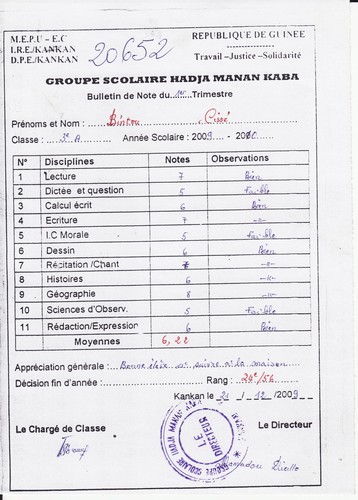 M.E.P.U - E.C REPUBLIQUE DE GUINEE
I.R.E./KANKAN
D.P.E./KANKAN 20652 Travail –Justice -Solidarité
GROUPE SCOLAIRE HADJA MANAN KABA
Bulletin de Note du 1er Trimestre
Prénoms et Nom : Bintou Cissé
Classe : 3e A Année Scolaire : 2009 - 2010
N° Disciplines Notes Observations
1 Lecture 7 Bien
2 Dictée et question 5 Faible
3 Calcul écrit 6 Bien
4 Ecriture 7 -//-
5 I.C Morale 5 Faible
6 Dessin 6 Bien
7 Récitation /Chant 7 -//-
8 Histoires 6 -//-
9 Géographie 8 -//-
10 Sciences d'Observ. 5 Faible
11 Rédaction/Expression 6 Bien
Moyennes 6,22
Appréciation générale : Bonne élève à suivre à la maison
Décision fin d'année : Rang : 24e/56
Kankan le 21 / 12 /2009
Le Chargé de Classe Le Directeur
GROUPE SCOLAIRE HADJA MANAN
LE DIRECTEUR
Mamadou Diallo